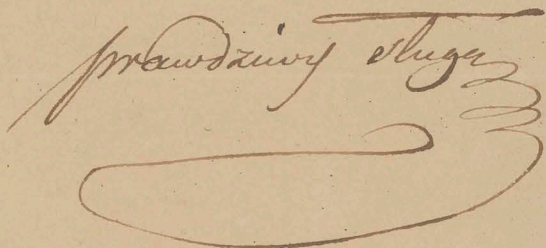 prawdziwy sługa